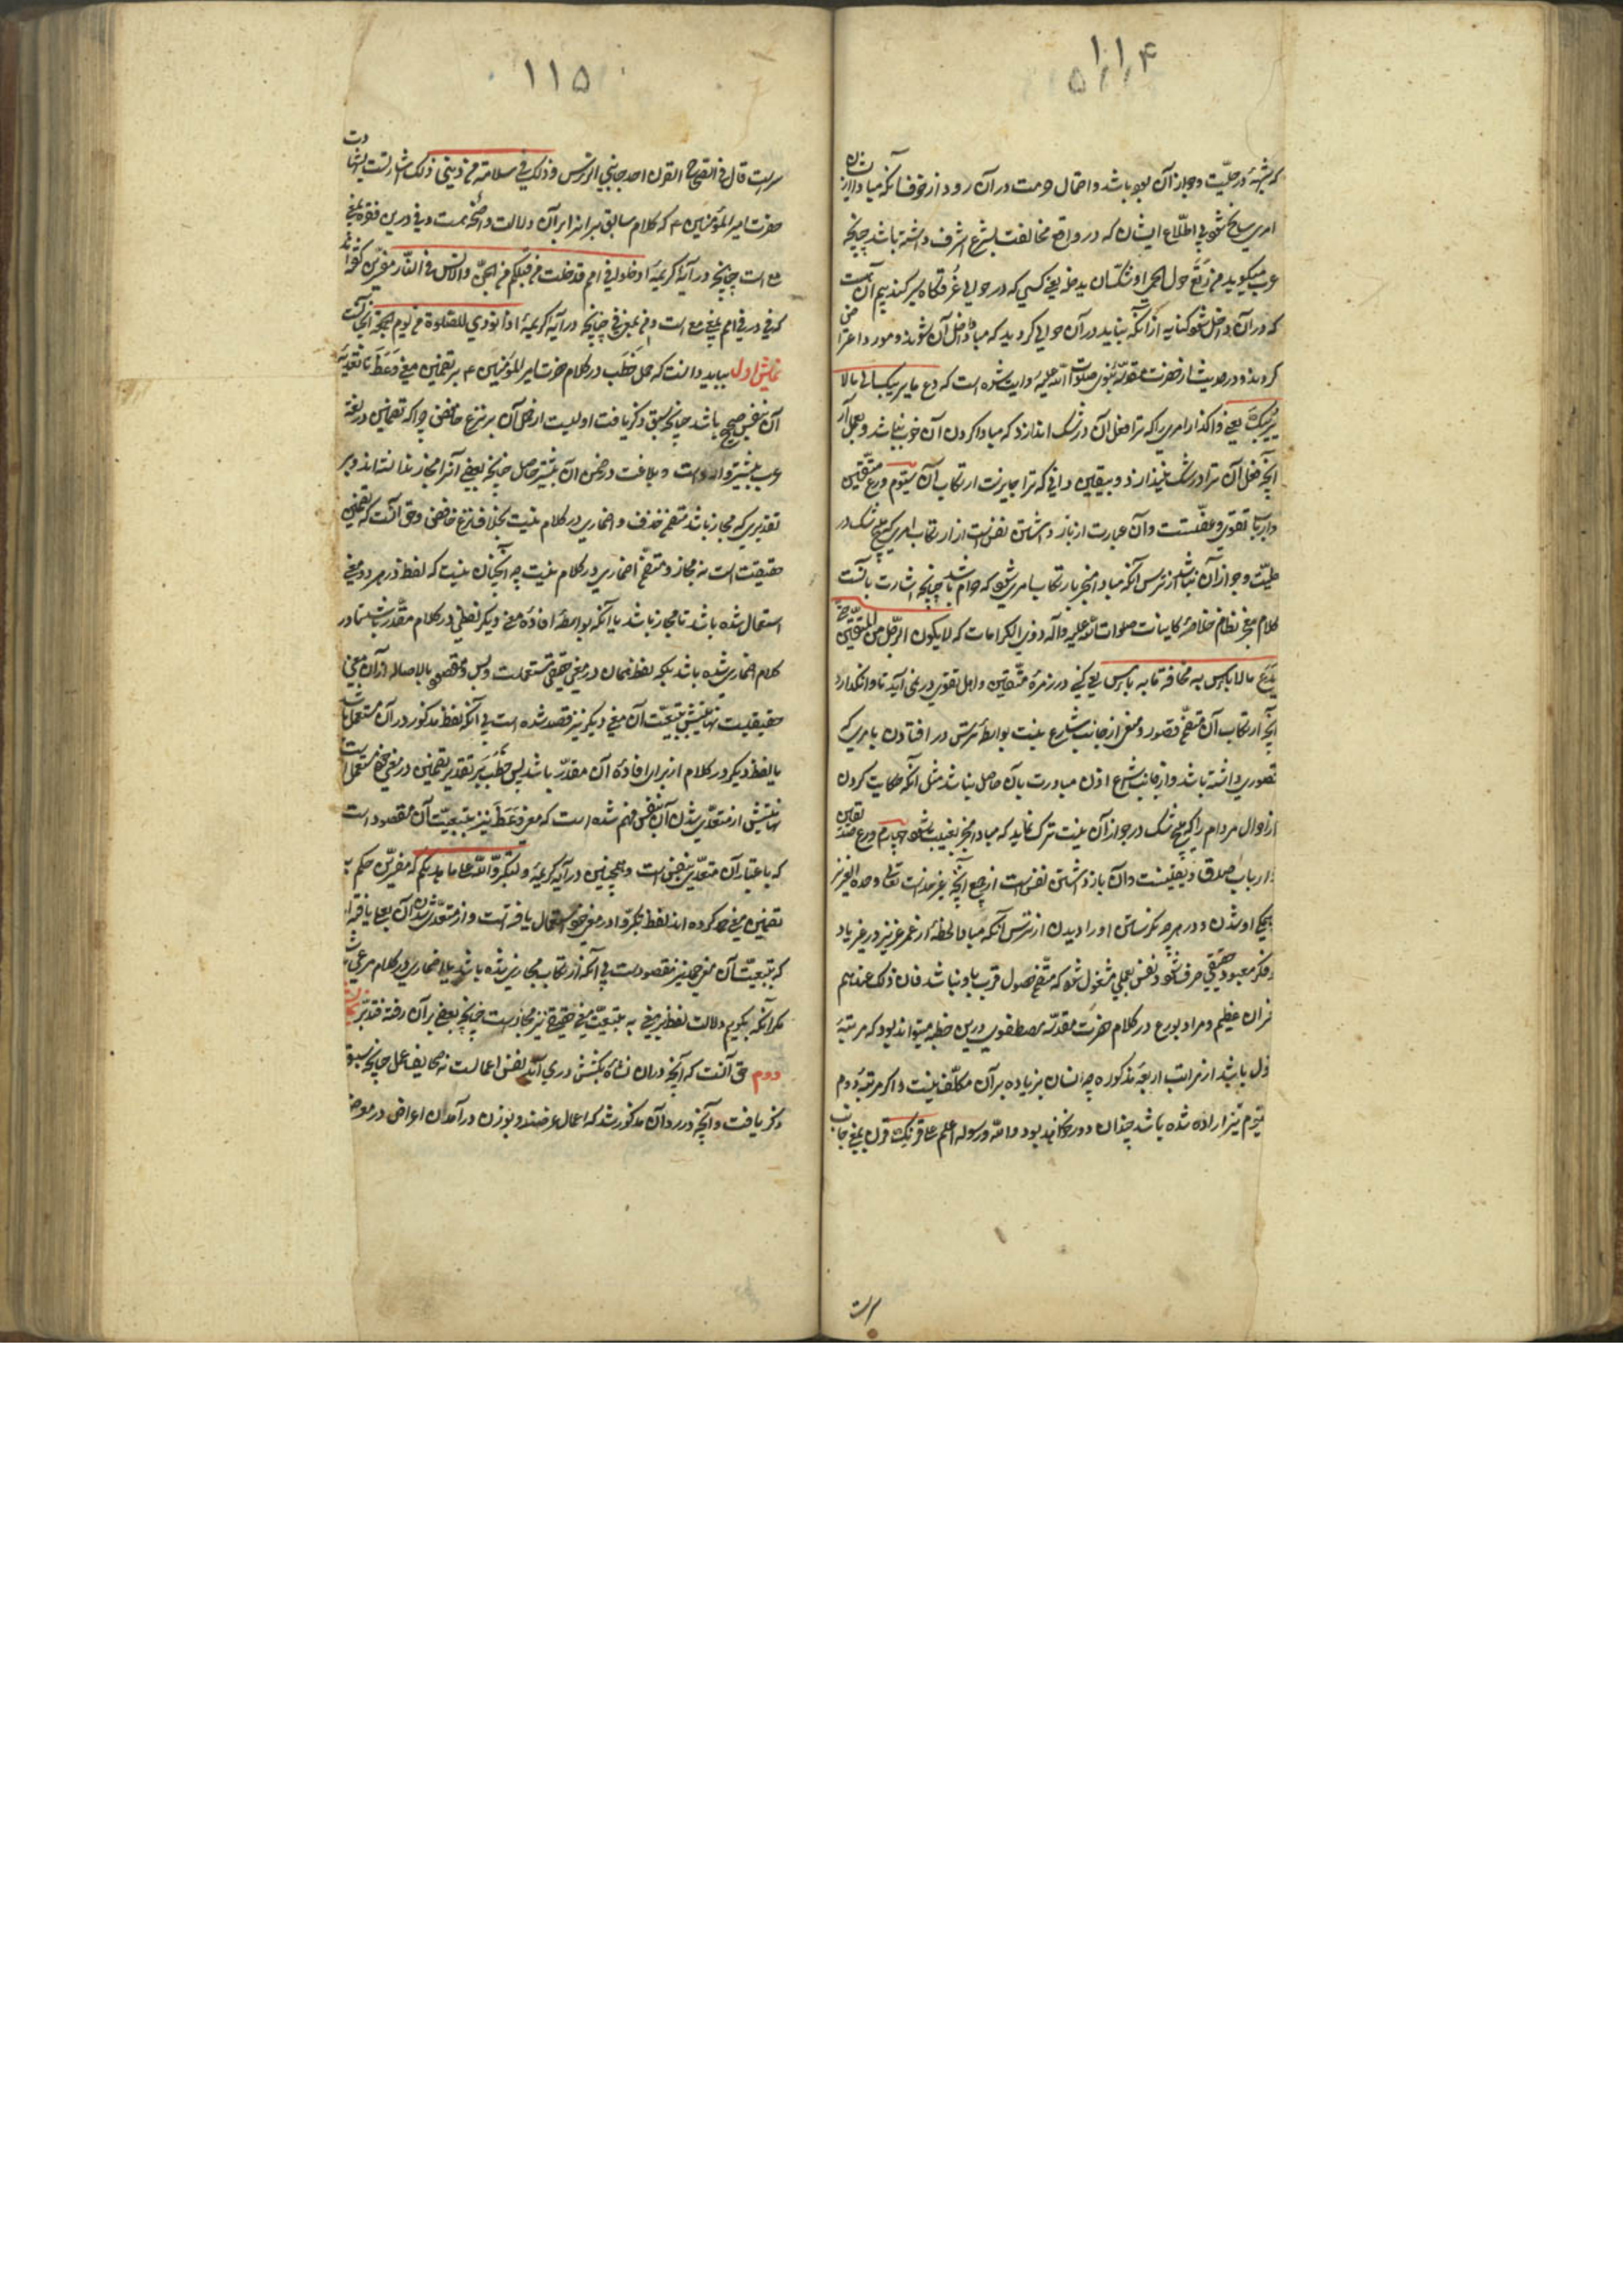 ۱۱۴
که شبههٔ در حلّیت و جواز آن بوده باشد و احتمال حرمت در آن رود از خوف آنکه مبادا از
امری سانح شود بی اطلاع ایشان که در واقع مخالفت بشرع اشرف داشته باشد چنانچه
عرب میگوید من رتع حول الحمی اوشک ان یدخله یعنی کسی که در حوالی غرقگاه سیر کند بیم آن هست
که در آن داخل شود کنایه از آنکه نباید در آن حوالی گردید که مبادا داخل آن شوند و مورد اعتراض
گردند و در حدیث از حضرت مقدسهٔ نبوی صلوات الله علیه روایت شده است که دع ما یریبک الی ما لا
یریبک یعنی واگذار امری را که ترا فعل آن در شک اندازد که مبادا کردن آن خوب نباشد و بعمل آر
آنچه فعل آن ترا در شک نیندازد و بیقین دانی که ترا جایزست ارتکاب آن سیّوم ورع متّقین
و ارباب تقوی و عفّتست و آن عبارت از باز داشتن نفس است از ارتکاب امری که هیچ شک در
حلیّت و جواز آن نباشد از ترس آنکه مبادا منجر بارتکاب امری شود که حرام باشد چنانچه اشارت بآنست
کلام معجز نظام خلاصهٔ کاینات صلوات الله علیه و آله ذوی الکرامات که لا یکون الرّجل من المتّقین حتّی
یدع ما لا باس به مخافة ما به باس یعنی کسی در زمرهٔ متّقین و اهل تقوی در نمی آید تا وانگذارد
آنچه ارتکاب آن متضمّن قصور و منعی از جانب شارع نیست بواسطهٔ ترس در افتادن بامری که
قصوری داشته باشد و از جانب شارع اذن مبادرت بآن حاصل نباشد مثل آنکه حکایت کردن
از احوال مردم را که هیچ شک در جواز آن نیست ترک نماید که مبادا منجر بغیبت شود چهارم ورع صدّیقین
و ارباب صدق و یقینست و آن باز داشتن نفس است از جمیع آنچه غیر خداست تعالی وحده العزیز
او شدن و در هر چه نگریستن او را دیدن از ترس آنکه مبادا لحظهٔ از عمر عزیز در غیر یاد
و فکر معبود حقیقی صرف شود و نفس بعملی مشغول شود که متضمّن حصول قرب باو نباشد فان ذلک عندهم
خسران عظیم و مراد بورع در کلام حضرت مقدسهٔ مصطفوی درین خطبه میتواند بود که مرتبهٔ
اول باشد از مراتب اربعهٔ مذکوره چه انسان بزیاده بر آن مکلّف نیست و اگر مرتبهٔ دوم
و سیّوم نیز اراده شده باشد چندان دور نخواهد بود والله و رسوله اعلم علی قرنک قرن بمعنی جانب
سرست
۱۱۵
سرست قال فی القرن احد جانبی الراس و ذلک فی سلامة من دینی ذلک اشارتست بشهادت
حضرت امیر المؤمنین ۴ که کلام سابق میرانه ابر آن دلالت واضحه هست و فی درین فقره بمعنی
مع است چنانچه در آیهٔ کریمهٔ ادخلوا فی امم قد خلت من قبلکم من الجنّ والانس فی النّار مفسّرین گفته اند
که فی در فی امم بمعنی مع است و من بمعنی فی چنانچه در آیهٔ کریمهٔ اذا نودی للصّلوة من یوم الجمعة
نمایش اول بباید دانست که حمل خطب در کلام حضرت امیر المؤمنین ۴ بر تضمین معنی وعظ تا تعدیهٔ
آن بنفس صحیح باشد چنانچه سبق ذکر یافت اولیست از حمل آن بر نزع خافض چرا که تضمین در لغة
عرب بیشتر وارد است و بلاغت در ضمن آن بیشتر حاصل چنانچه بعضی آنرا مجاز ندانسته اند و بر
تقدیری که مجاز باشد متضمن حذف و اضماری در کلام نیست بخلاف نزع خافض و حق آنست که تضمین
حقیقت است نه مجاز و متضمن اضماری در کلام نیست چه آنچنان نیست که لفظ در هر دو معنی
استعمال شده باشد تا مجاز باشد یا آنکه بواسطهٔ افادهٔ معنی دیگر لفظی در کلام مقدّر باشد تا در
کلام اضماری شده باشد بلکه لفظ همان در معنی حقیقی مستعملست و بس و مقصود بالاصاله از آن معنی
حقیقیست نهایتش بتبعیّت آن معنی دیگر نیز قصد شده است بی آنکه لفظ مذکور در آن مستعمل باشد
یا لفظ دیگر در کلام از برای افادهٔ آن مقدّر باشد پس خطب بر تقدیر تضمین در معنی خود مستعملست
نهایتش از متعدّی شدن آن بنفس فهم شده است که معنی وعظ نیز بتبعیّت آن مقصود است
که باعتبار آن متعدّی بنفس است و همچنین در آیهٔ کریمهٔ ولتکبّروا الله علی ما هدیکم که مفسّرین حکم به
تضمین معنی حمد کرده اند لفظ تکبّروا در معنی خود استعمال یافته است و از متعدّی شدن آن بعلی یافته اند
که بتبعیّت آن معنی حمد نیز مقصودست بی آنکه ارتکاب مجازی شده باشد یا اضماری در کلام مرعی باشد
مگر آنکه بگویم دلالت لفظ بر معنی به بتبعیّت معنی حقیقی نیز مجازست چنانچه بعضی بر آن رفته فتدبّر
دوم حق آنست که آنچه در آن نشأه بکشش دری آید نفس اعمالست نه صحایف عمل چنانچه سبق
ذکر یافت و آنچه در رد آن مذکور شد که اعمال عرضند و بوزن در آمدن اعراض در معرض